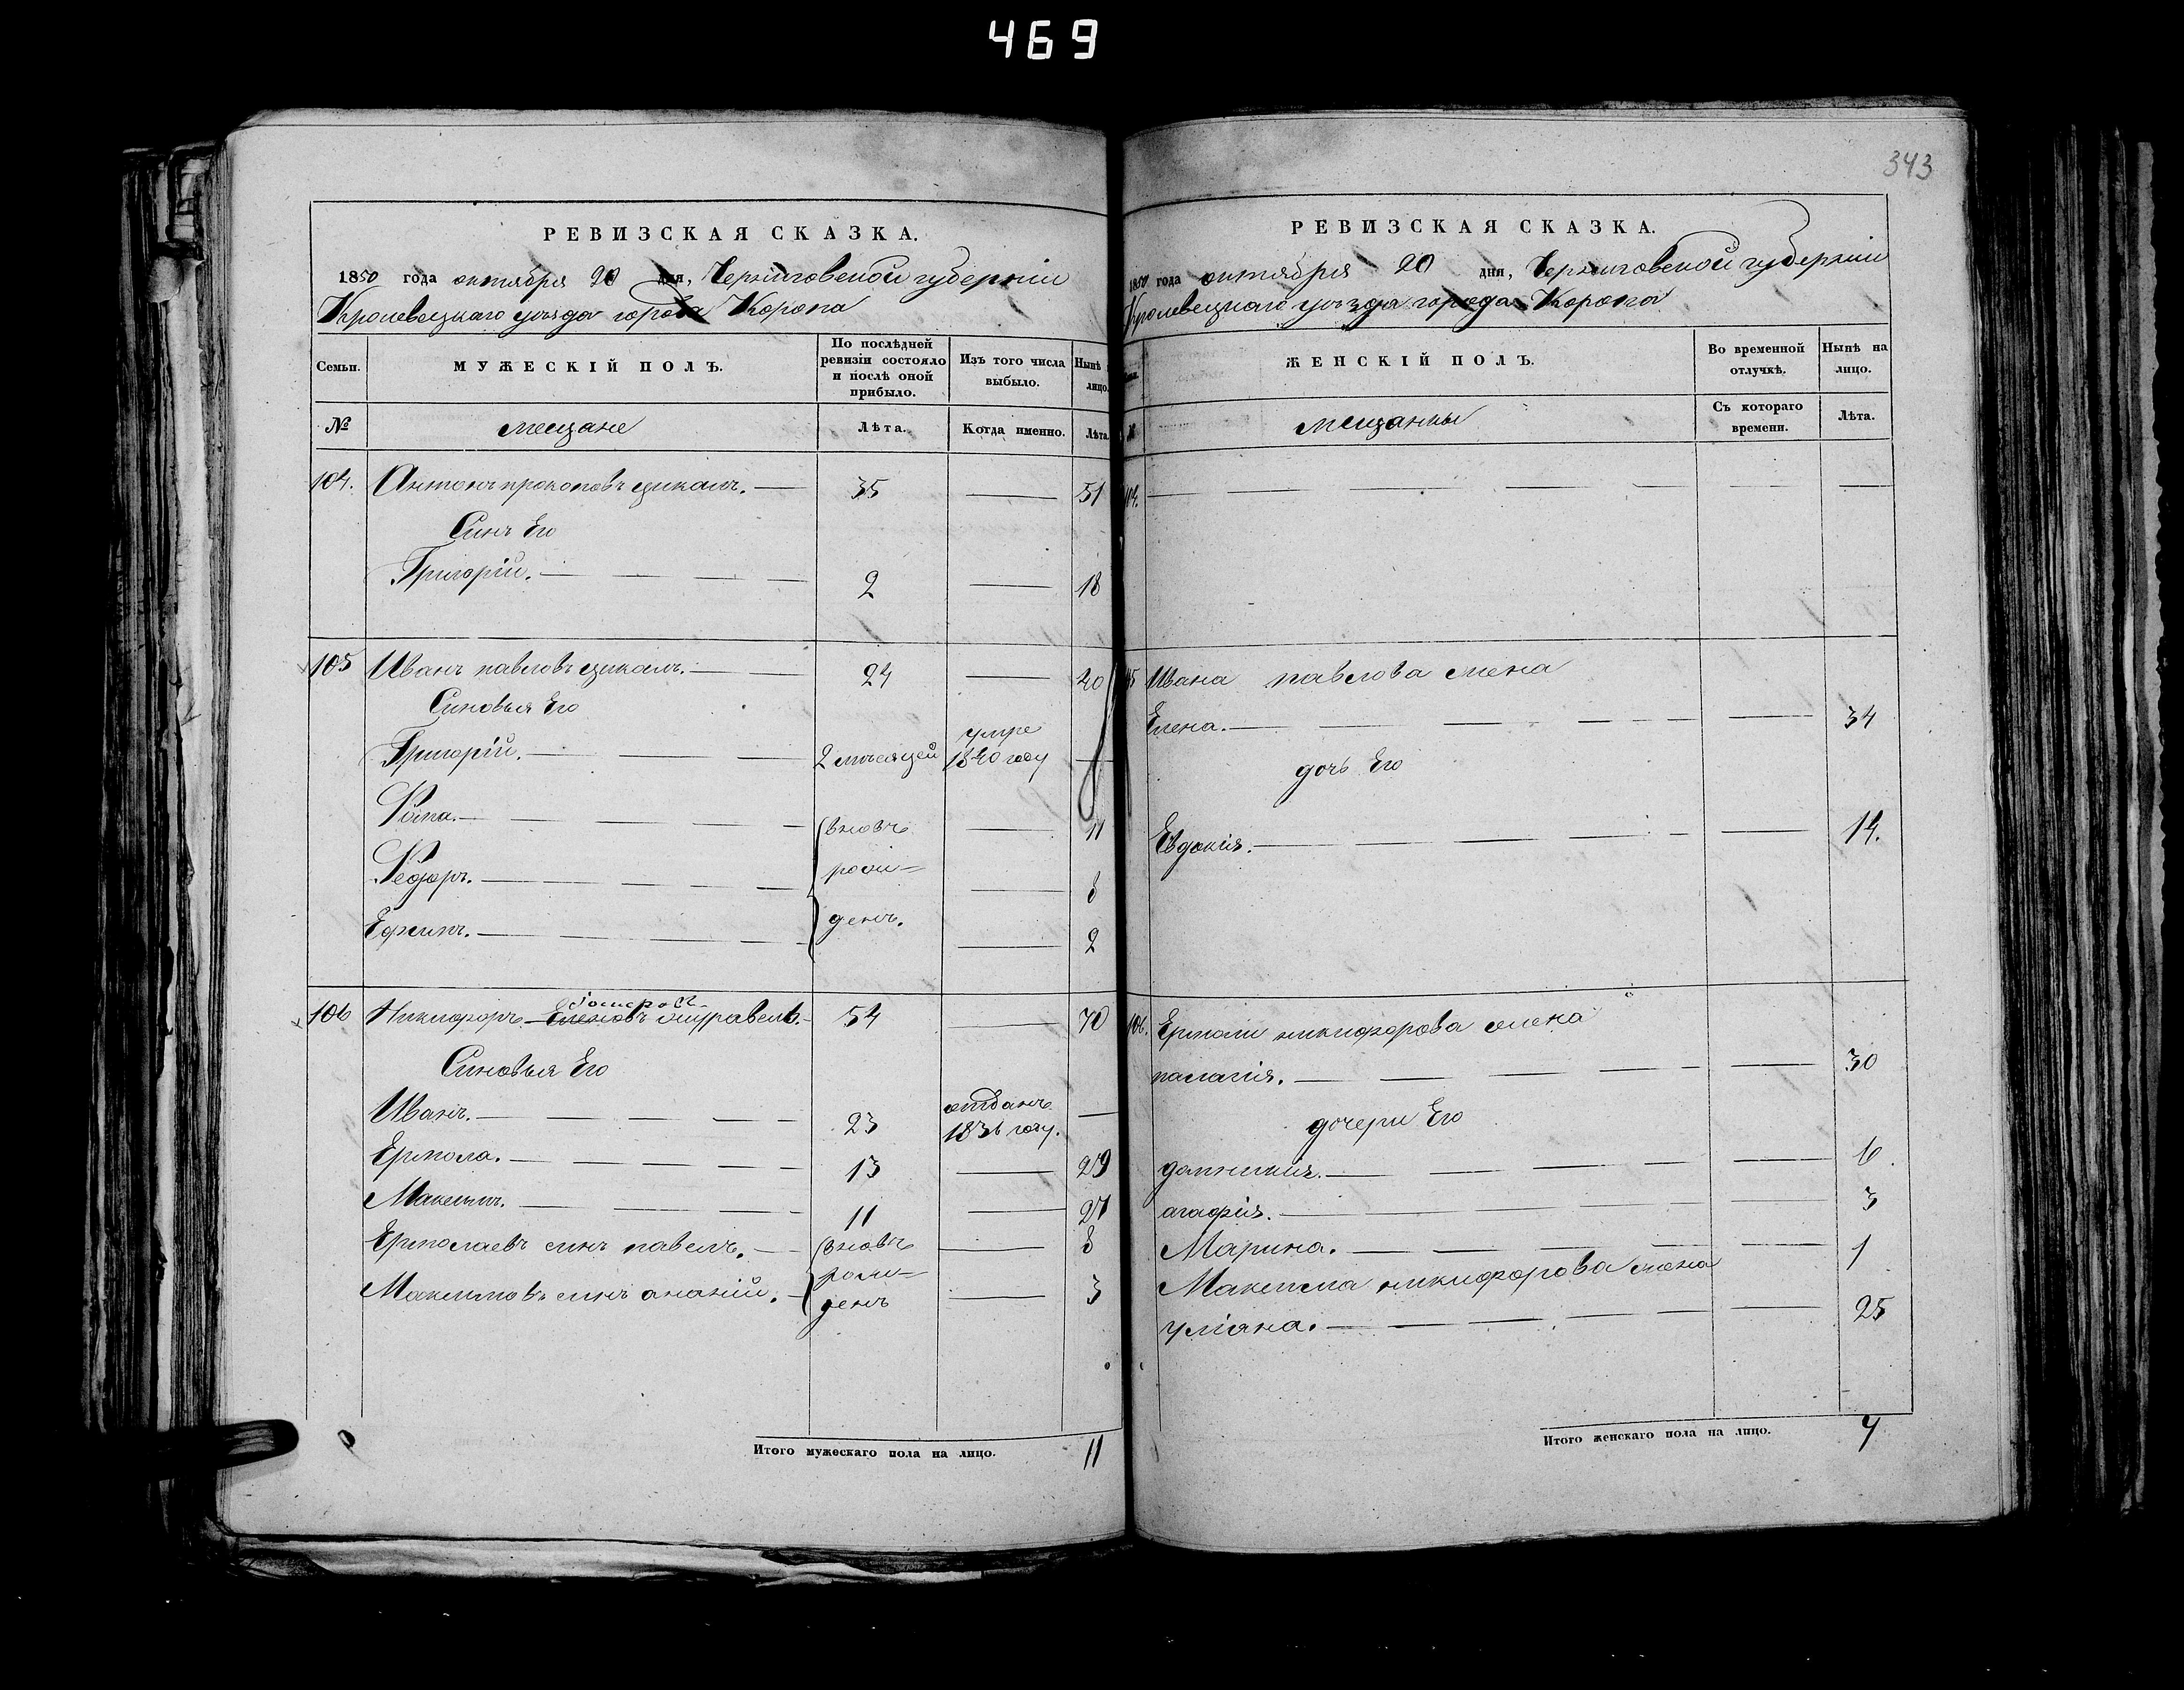 469
343
РЕВИЗСКАЯ СКАЗКА.
1850 года октября 20 дня, Черниговской губернии
Кролевецкаго уѣзда города Коропа
Семьи.
МУЖЕСКІЙ ПОЛЪ.
По послѣдней ревизіи состояло и послѣ оной прибыло.
Изъ того числа выбыло.
Нынѣ лицо.
№
мещане
Лѣта.
Когда именно.
Лѣта.
104. Антонъ прокоповъ цикалъ. 35 51
Синъ Его
Григорій. 2 18
105 Иванъ павловъ цикалъ. 24 40
Синовья Его
Григорій. 2 мѣсяцей умре 1840 году
Фома. вновъ 11
Федоръ. рожи= 8
Ефимъ. денъ. 2
106 Никифоръ журавель. 54 70
Синовья Его
Иванъ. 23 отданъ 1836 году.
Ермола. 13 29
Максимъ. 11 27
Ермолаевъ синъ павелъ. вновъ 8
Максимовъ синъ ананій. рожи= денъ 3
Итого мужескаго пола на лицо. 11
РЕВИЗСКАЯ СКАЗКА.
1850 года октября 20 дня, Черниговской губерніи
Кролевецкаго уѣзда города Коропа
ЖЕНСКІЙ ПОЛЪ.
Во временной отлучкѣ.
Нынѣ на лицо.
№
мещанки
Съ котораго времени.
Лѣта.
104.
105 Ивана павлова жена
Елена. 34
дочь Его
Евдокія. 14.
106. Ермоли никифорова жена
палагія. 30
дочери Его
домникія. 6
агафія. 3
Марина. 1
Максима никифорова жена
уліана. 25
Итого женскаго пола на лицо. 7